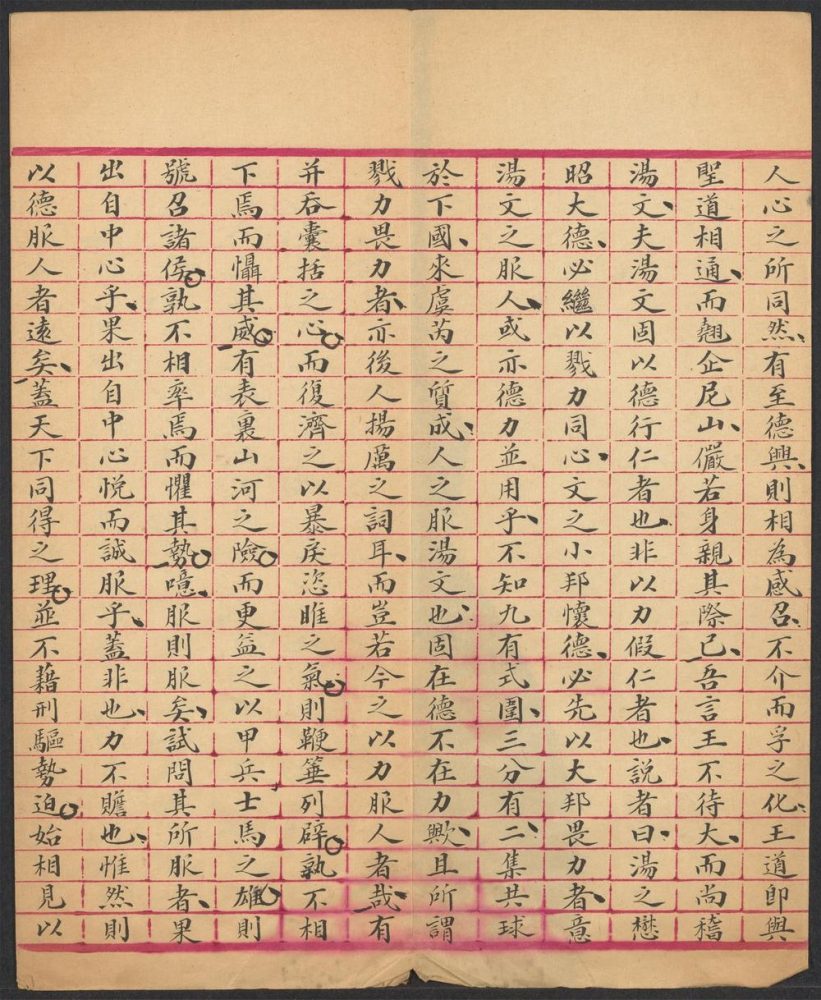 人心之所同然、有至德興、則相為感召、不介而孚之化、王道即與
聖道相通、而翹企尼山、儼若身親其際已、吾言王不待大、而尚稽
湯文、夫湯文固以德行仁者也、非以力假仁者也、說者曰、湯之懋
昭大德、必繼以戮力同心、文之小邦懷德、必先以大邦畏力者、意
湯文之服人、或亦德力並用乎、不知九有式圍、三分有二、集共球
於下國、來虞芮之質成、人之服湯文也、固在德不在力歟、且所謂
戮力畏力者、亦後人揚厲之詞耳、而豈若今之以力服人者哉、有
并吞囊括之心。而復濟之以暴戾恣睢之氣。則鞭箠列辟。孰不相
下焉而懾其威。有表裏山河之險。而更益之以甲兵士馬之雄。則
號召諸侯。孰不相率焉而懼其勢。噫、服則服矣、試問其所服者、果
出自中心乎、果出自中心悅而誠服乎、蓋非也、力不贍也、惟然則
以德服人者遠矣、蓋天下同得之理。並不藉刑驅勢迫。始相見以